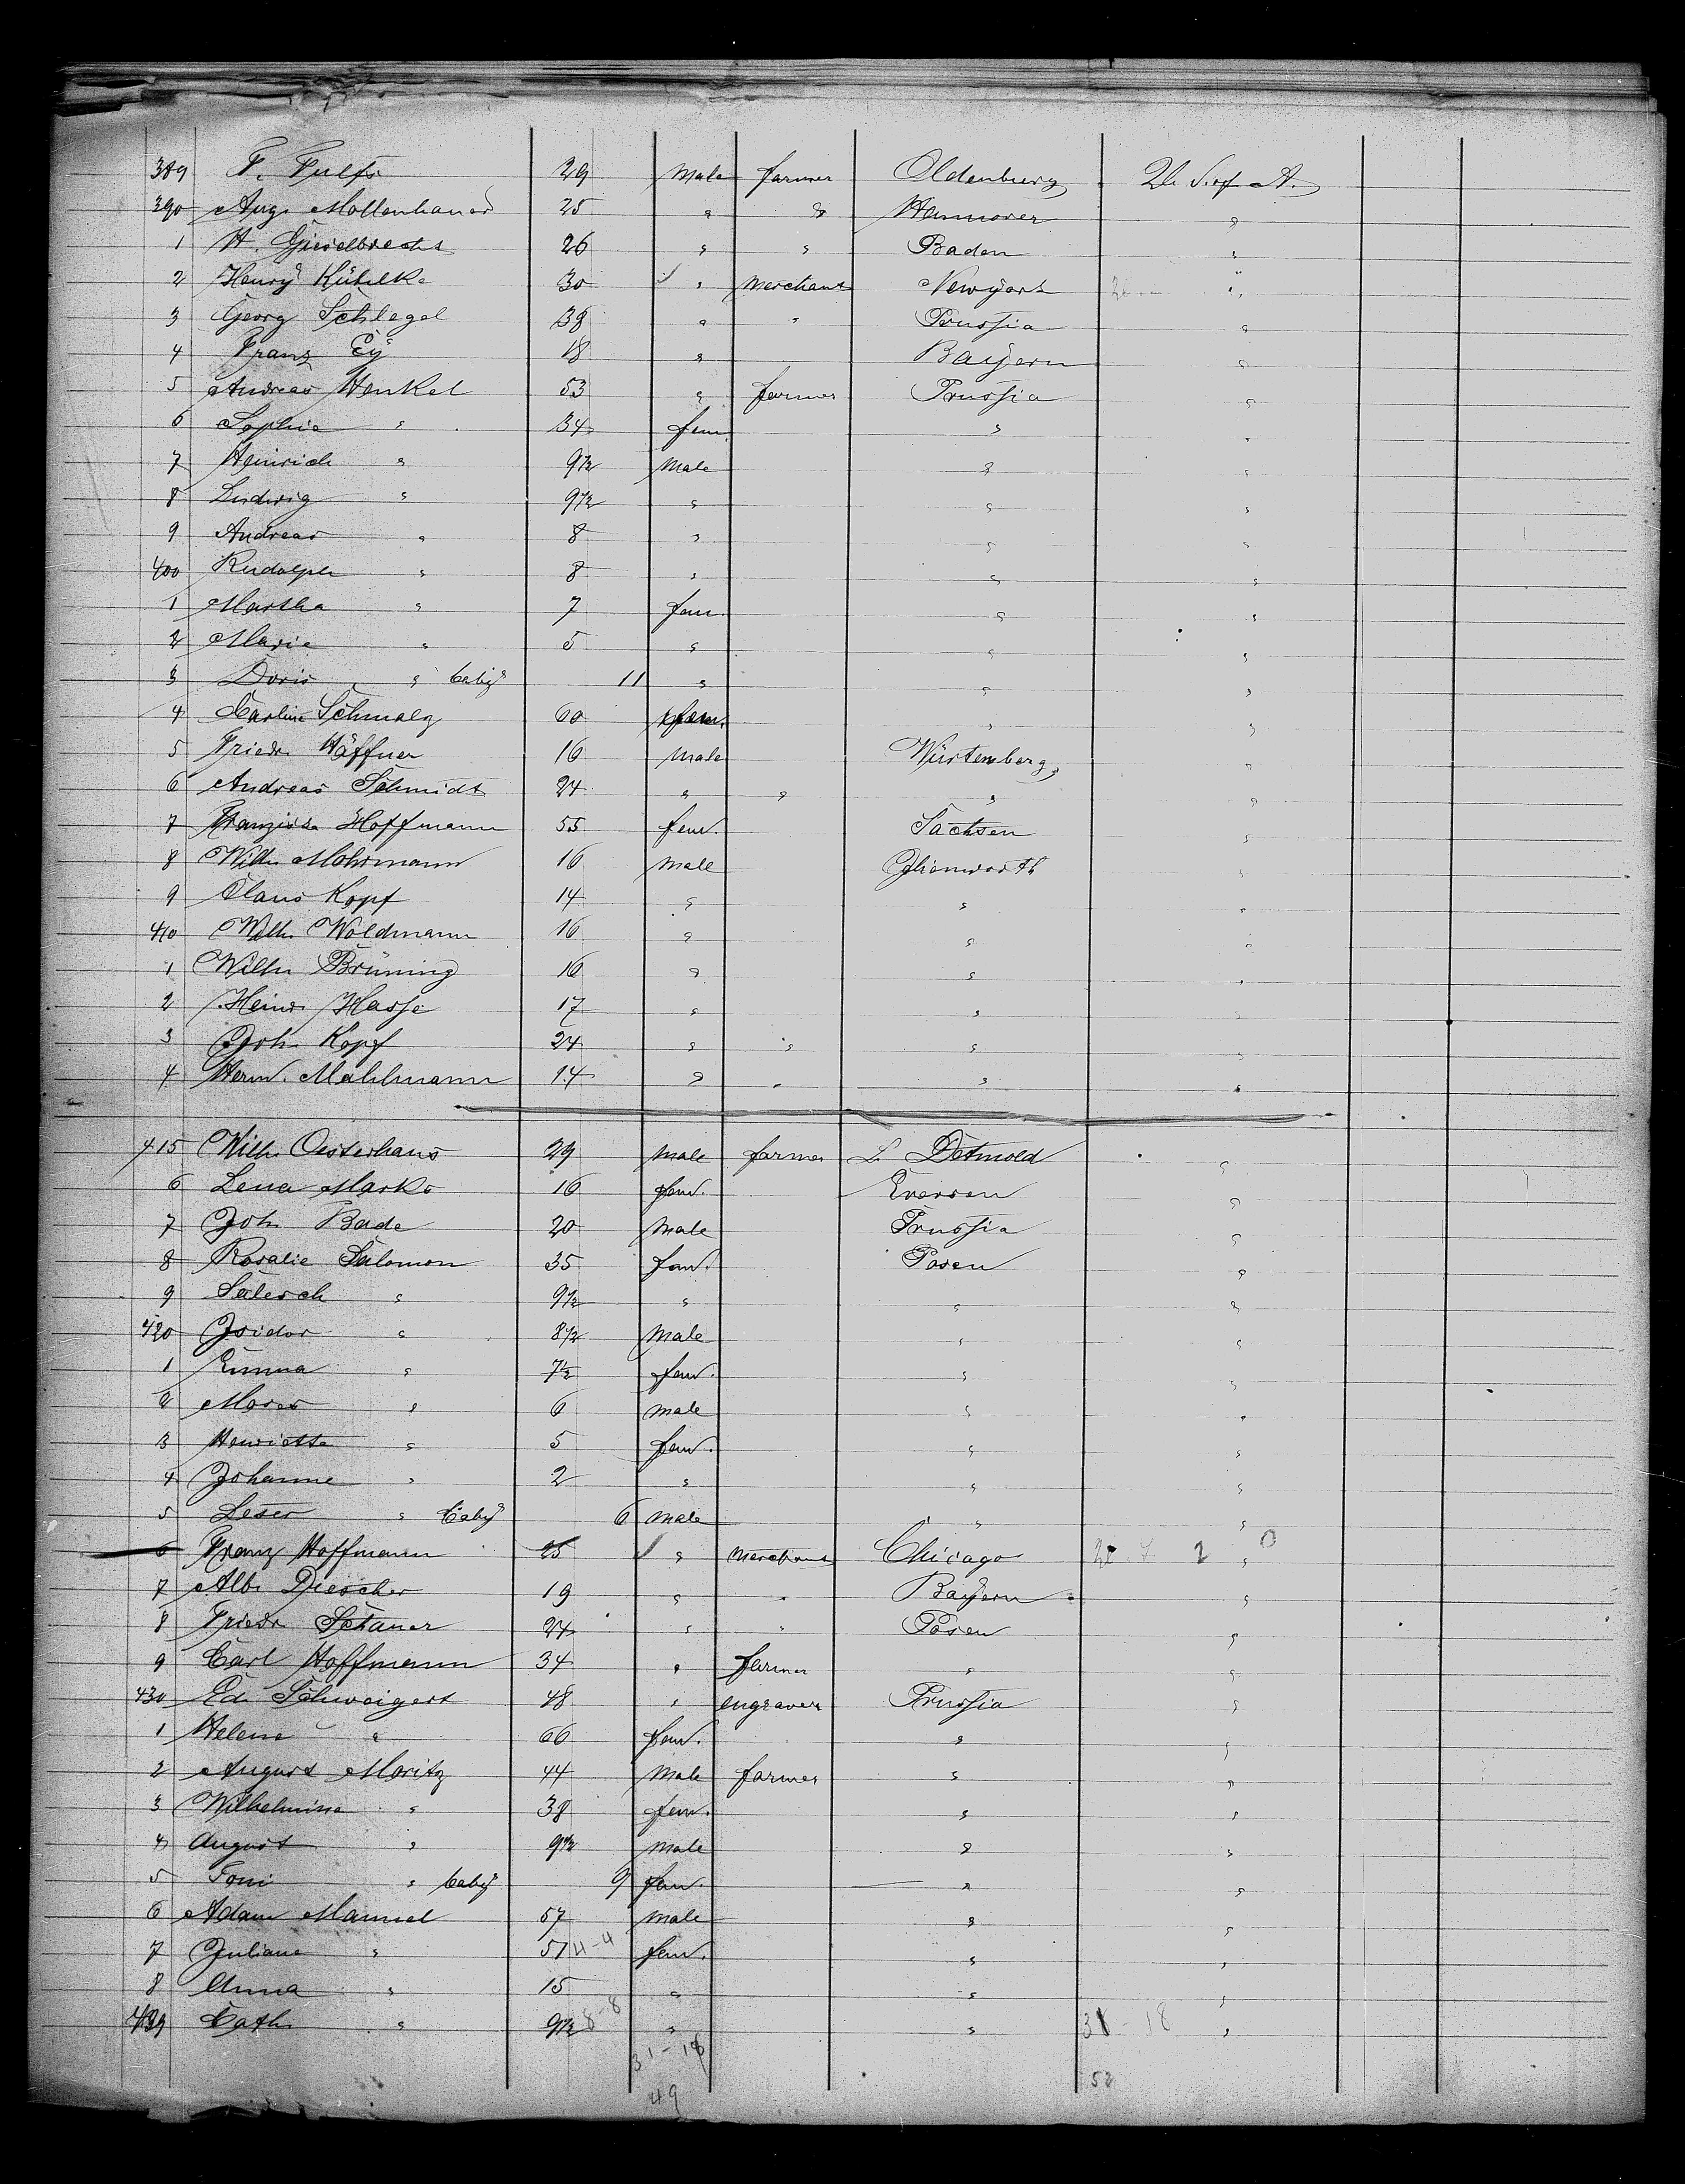 389 F. Fulfs 29 Male farmer Oldenburg U. S. of A.
390 Aug. Mollenhauer 25 " " Hannover "
1 H. Gieselbrecht 26 " " Baden "
2 Henry Kühlke 30 " Merchant Newyork "
3 Georg Schlegel 38 " " Prussia "
4 Franz Ey 18 " Bayern "
5 Andreas Henkel 53 " farmer Prussia "
6 Sophie " 34 fem. " "
7 Heinrich " 9½ Male " "
8 Ludwig " 9½ " " "
9 Andreas " 8 " " "
400 Rudolph " 8 " " "
1 Martha " 7 fem. " "
2 Marie " 5 " " "
3 Doris " baby 11 " " "
4 Carline Schmalz 60 fem. " "
5 Friedr. Häffner 16 Male Würtemberg "
6 Andreas Schmidt 24 " " " "
7 Franziska Hoffmann 55 fem. Sachsen "
8 Wilh. Mohrmann 16 Male "
9 Claus Kopf 14 " " "
410 Wilh. Woldmann 16 " " "
1 Wilh. Brüning 16 " " "
2 Heinr. Hasse 17 " " "
3 Joh. Kopf 24 " " " "
4 Herm. Mahlmann 14 " " " "
415 Wilh. Oesterhaus 29 Male farmer L. Detmold "
6 Lena Marks 16 fem. Eversen "
7 Joh. Bade 20 Male Prussia "
8 Rosalie Salomon 35 fem. Posen "
9 " 9½ " " "
420 Isidor " 8½ Male " "
1 Emma " 7½ fem. " "
2 Moses " 6 male " "
3 Henriette " 5 fem. " "
4 Johanne " 2 " " "
5 Leser " baby 6 male " "
6 Franz Hoffmann 25 " Merchant Chicago 2 0 "
7 Alb. Diescher 19 " " Bayern "
8 Friedr. Schauer 24 " " Posen "
9 Carl Hoffmann 34 " farmer " "
430 Ed. Schweigert 48 " engraver Prussia "
1 Helene " 66 fem. " "
2 August Moritz 44 Male farmer " "
3 Wilhelmine " 38 fem. " "
4 August " 9½ Male " "
5 Toni " baby 9 fem. " "
6 Adam Mannel 57 male " "
7 Juliane " 51 4-4 fem. " "
8 Anna " 15 " " "
439 Cath. " 9½ 8-8 " " 31-18 "
31-18
49